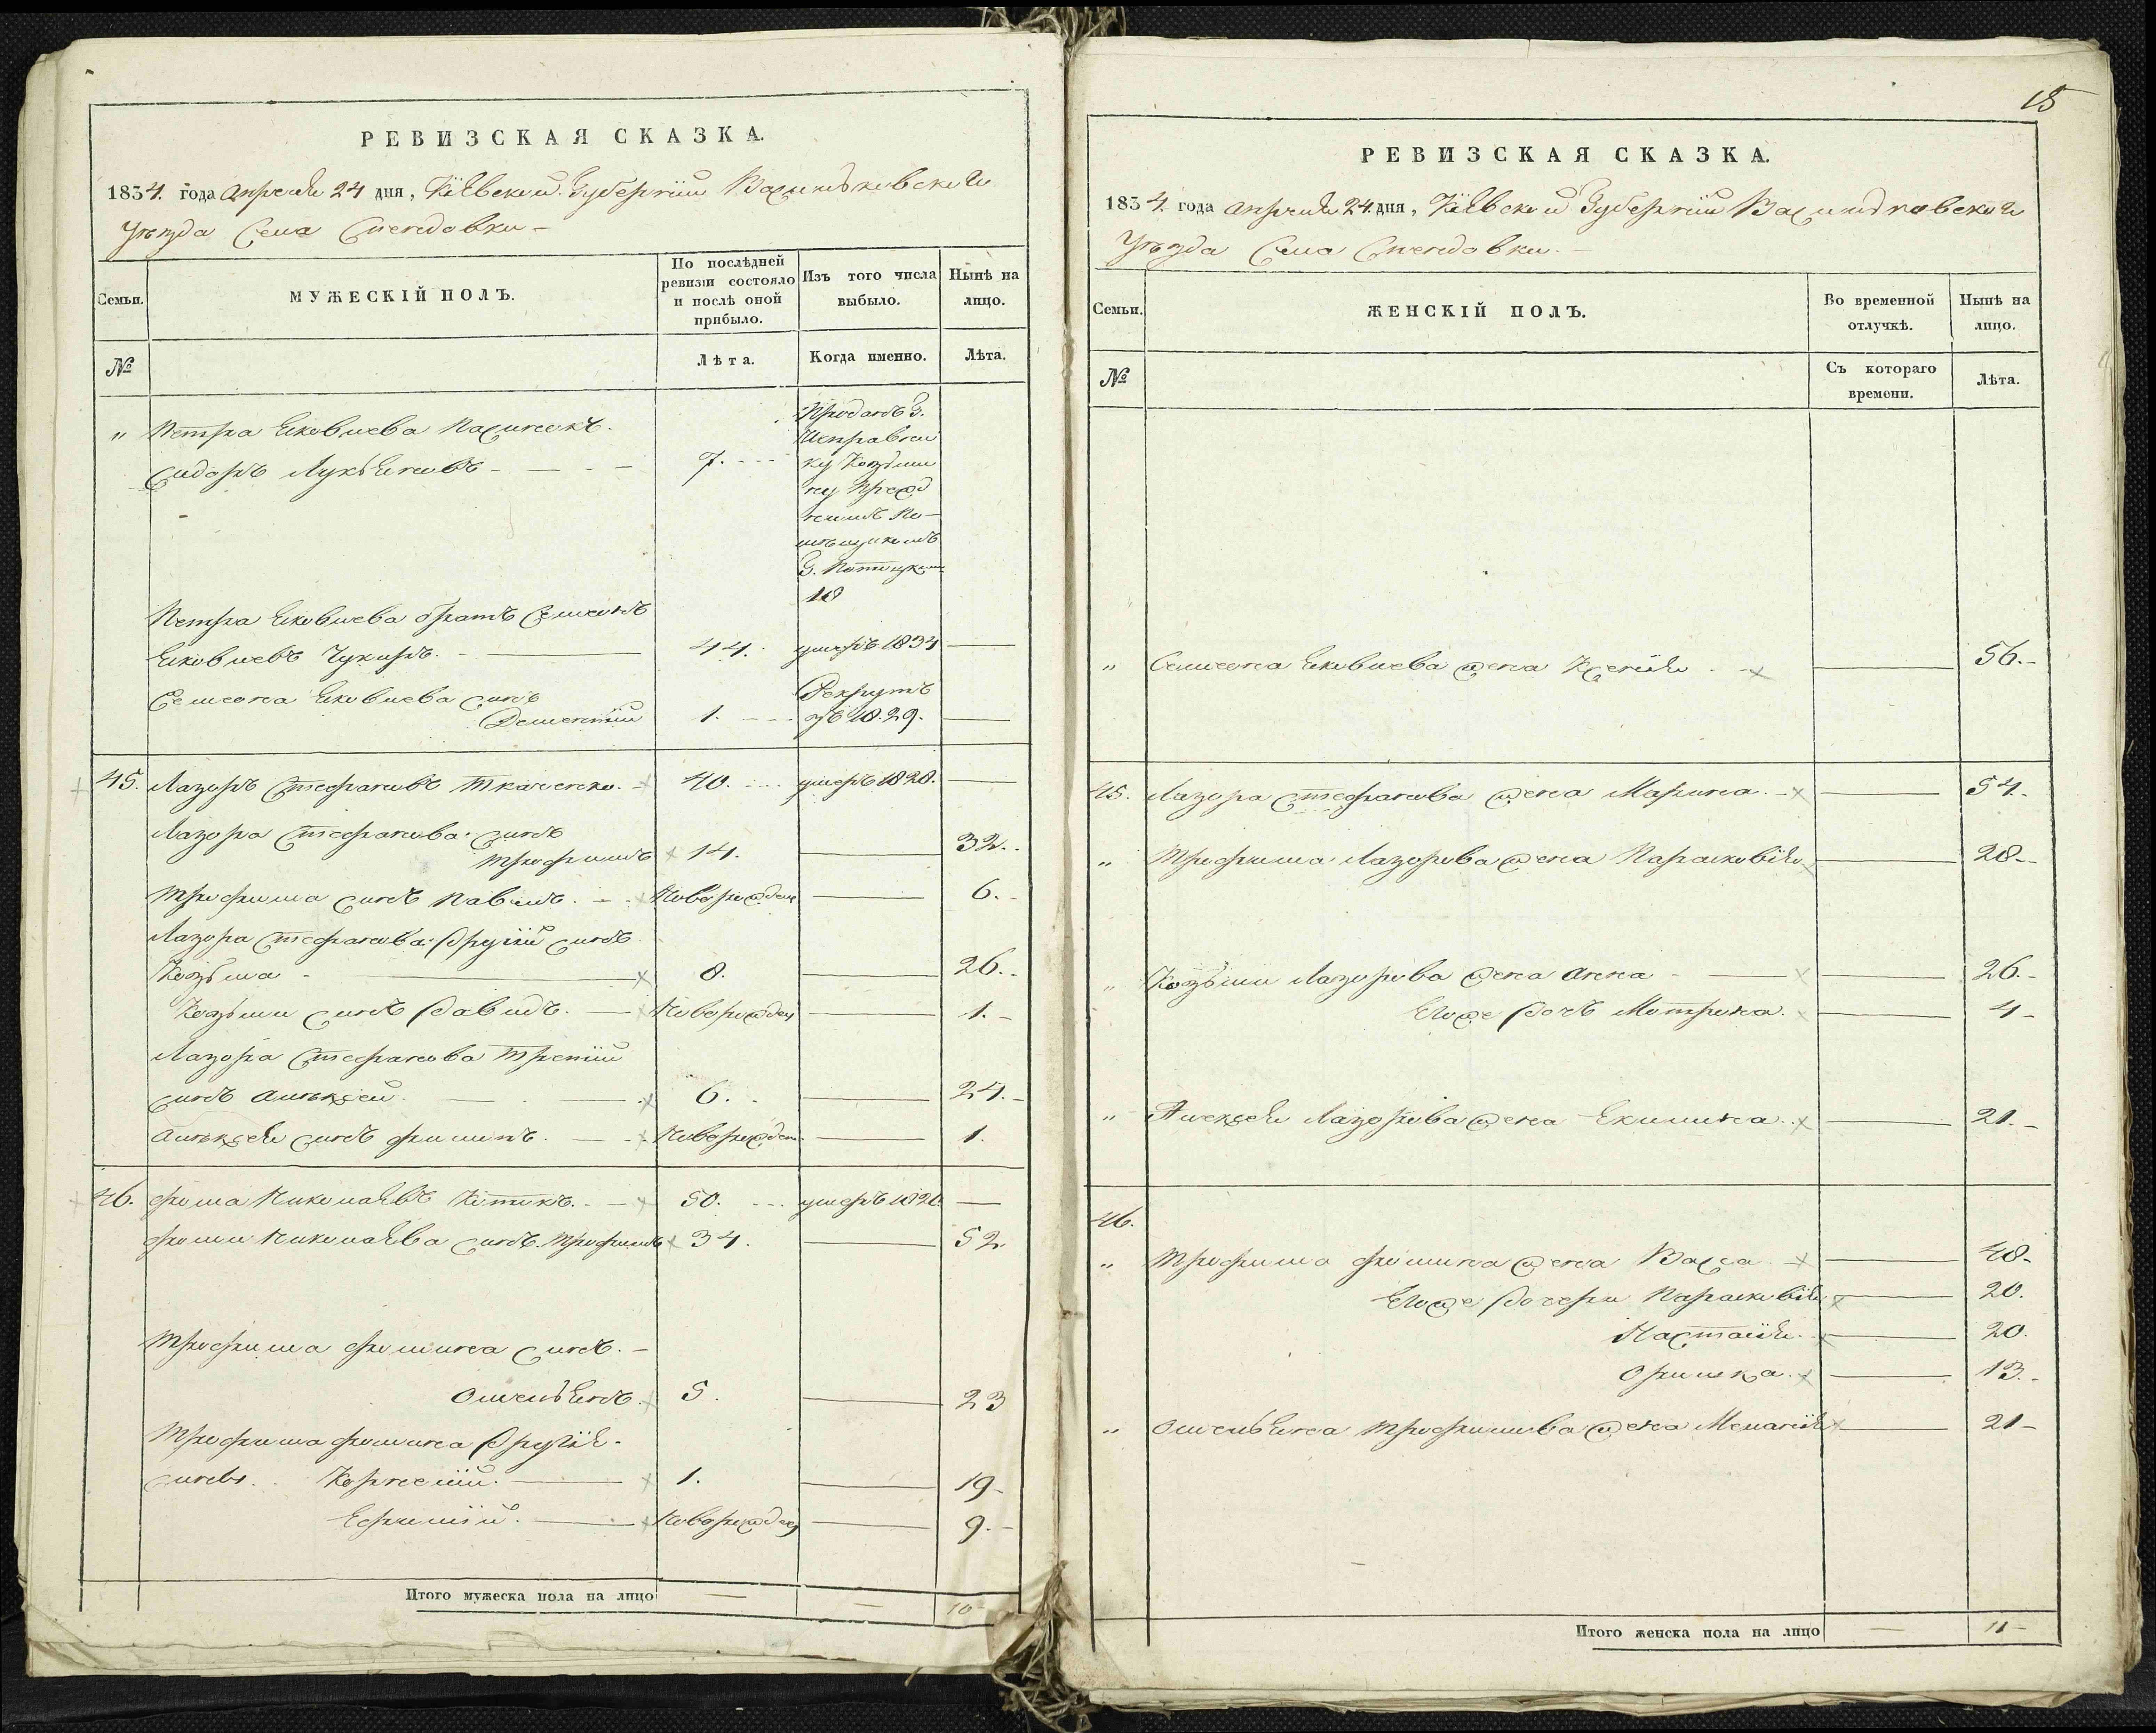 РЕВИЗСКАЯ СКАЗКА.
1834. года Апреля 24 дня, Кіевской Губерніи Васильковскаго
Уѣзда Села
Семьи.
МУЖЕСКІЙ ПОЛЪ.
По послѣдней ревизіи состояло и послѣ оной прибыло.
Изъ того числа выбыло.
Нынѣ на лицо.
№
Лѣта.
Когда именно.
Лѣта.
" Петра Яковлева
Сидоръ Лукьяновъ 7.
Проданъ Г.
Исправни
ку
ну
По
мѣщикомъ
Г.
18
Петра Яковлева братъ Семионъ
Яковлевъ 44. умеръ 1831
Семиона Яковлева сынъ
Дементій 1. Рекрутъ
1829.
45. Лазоръ Стефановъ Ткаченко. 40. умеръ 1828.
Лазора Стефанова сынъ
Трофимъ 14. 32.
Трофима сынъ Павелъ. Новорожден 6.
Лазора Стефанова другій сынъ
Козьма 8. 26.
Козьмы сынъ Давидъ. Новорожден 1.
Лазора Стефанова Третій
сынъ Алексѣй 6. 24.
Алексѣя сынъ Филипъ. Новорожден 1.
46. Фома Николаевъ Котикъ. 50. умеръ 1826.
Фомы Николаева сынъ Трофимъ 34. 52
Трофима Фомина сынъ.
Омельянъ. 5. 23
Трофима Фомина Другіе
сыны. Корнелій. 1. 19
Ефимій. Новорожден 9.
Итого мужеска пола на лицо 10
15
РЕВИЗСКАЯ СКАЗКА.
1834. года Апреля 24 дня, Кіевской Губерніи Васильковскаго
Уѣзда Села
Семьи.
ЖЕНСКІЙ ПОЛЪ.
Во временной отлучкѣ.
Нынѣ на лицо.
№
Съ котораго времени.
Лѣта.
" Семиона Яковлева жена Ксенія 56.
45. Лазора Стефанова жена Марина. 54.
" Трофима Лазорова жена Парасковія 28.
" Козьмы Лазорова жена Анна 26.
Егоже дочь Мотрона. 4
" Алексѣя Лазорова жена Екилина. 21.
46.
" Трофима Фомина жена Васса 48
Егоже дочери Парасковія 20.
Настасія. 20.
Оришка. 13.
" Омельяна Трофимова жена Меланія 21
Итого женска пола на лицо 11